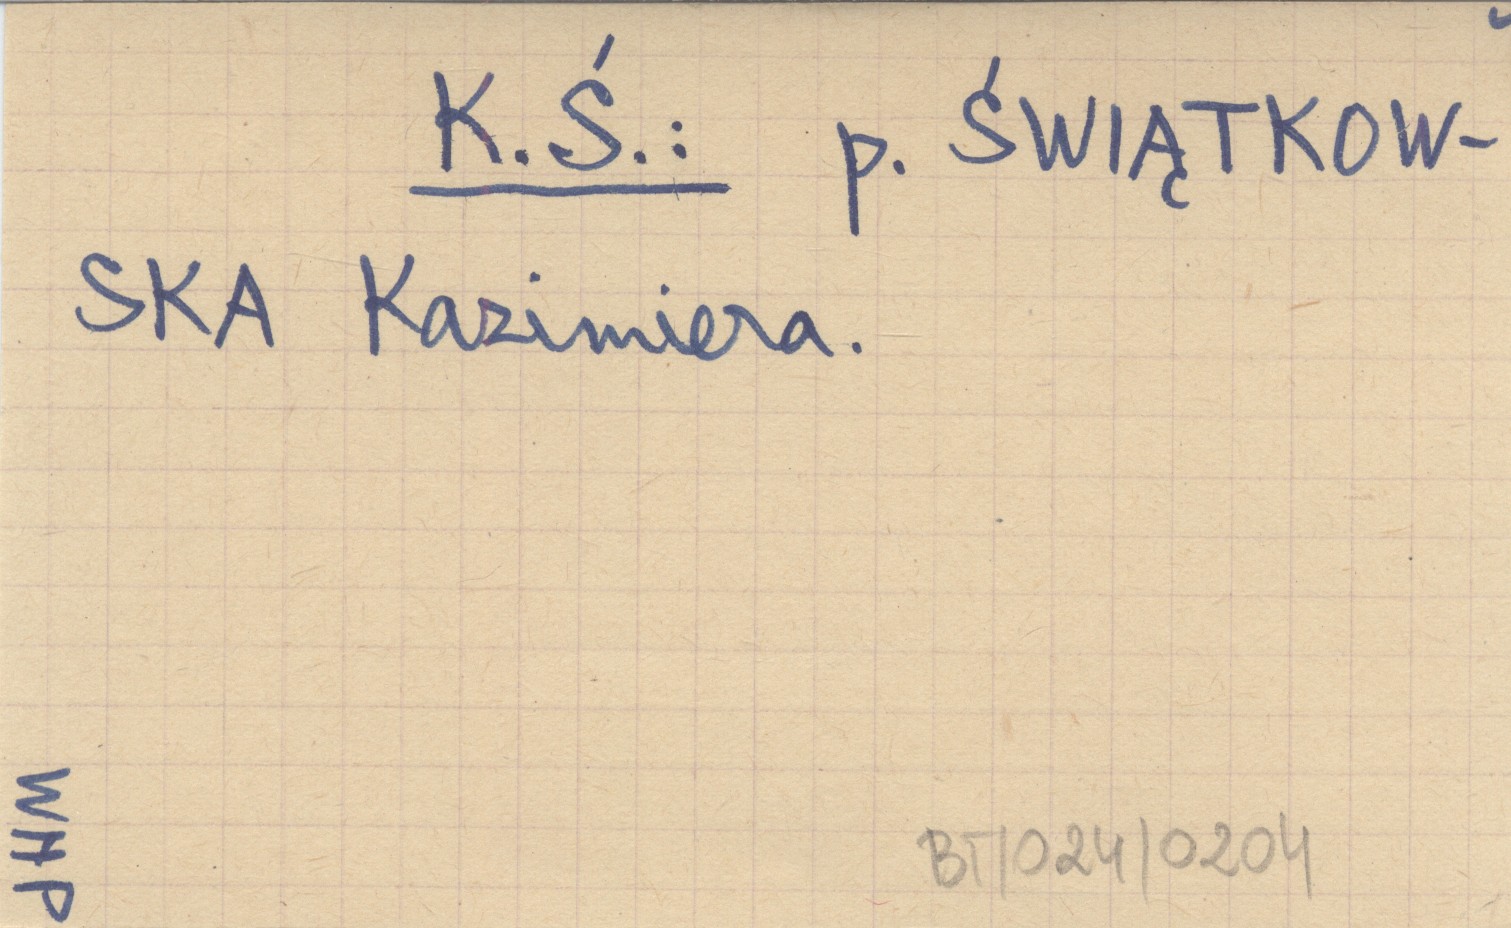 K.Ś.: p. ŚWIĄTKOW-
SKA Kazimiera.
WHP
BT/024/0204